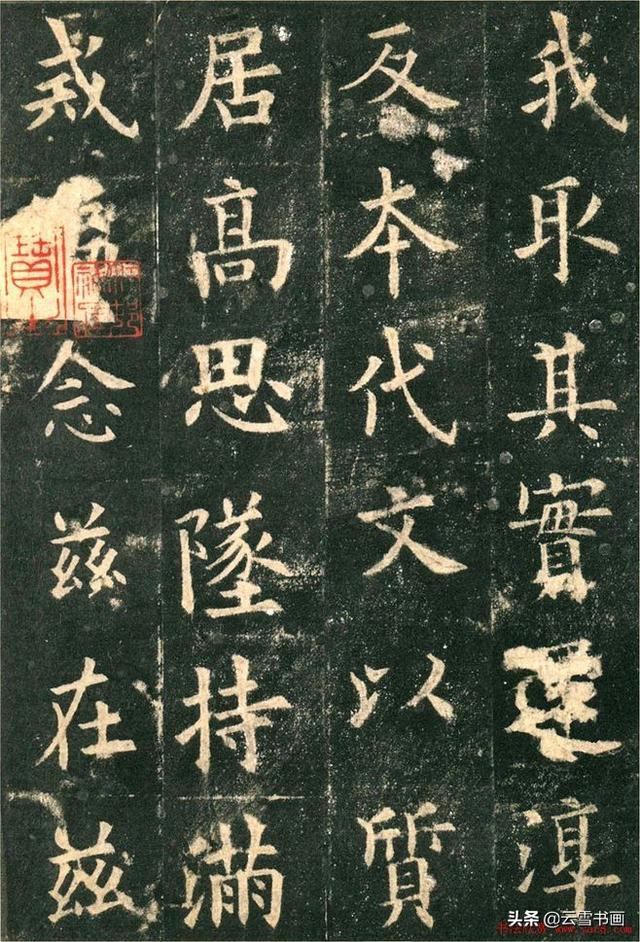 我取其實還淳
反本代文以質
居髙思墜持滿
戒念茲在茲
头条 @云雪书画